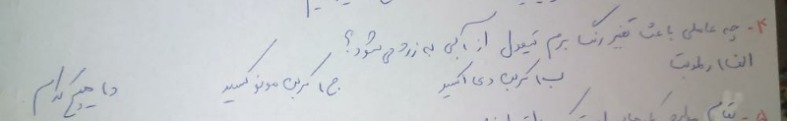 ۴- چه عاملی باعث تغییر رنگ برم تیمول از آبی به زرد می‌شود؟
الف) رطوبت
ب) کربن دی اکسید ج) کربن مونو کسید د) هیچ کدام
۵- تمام